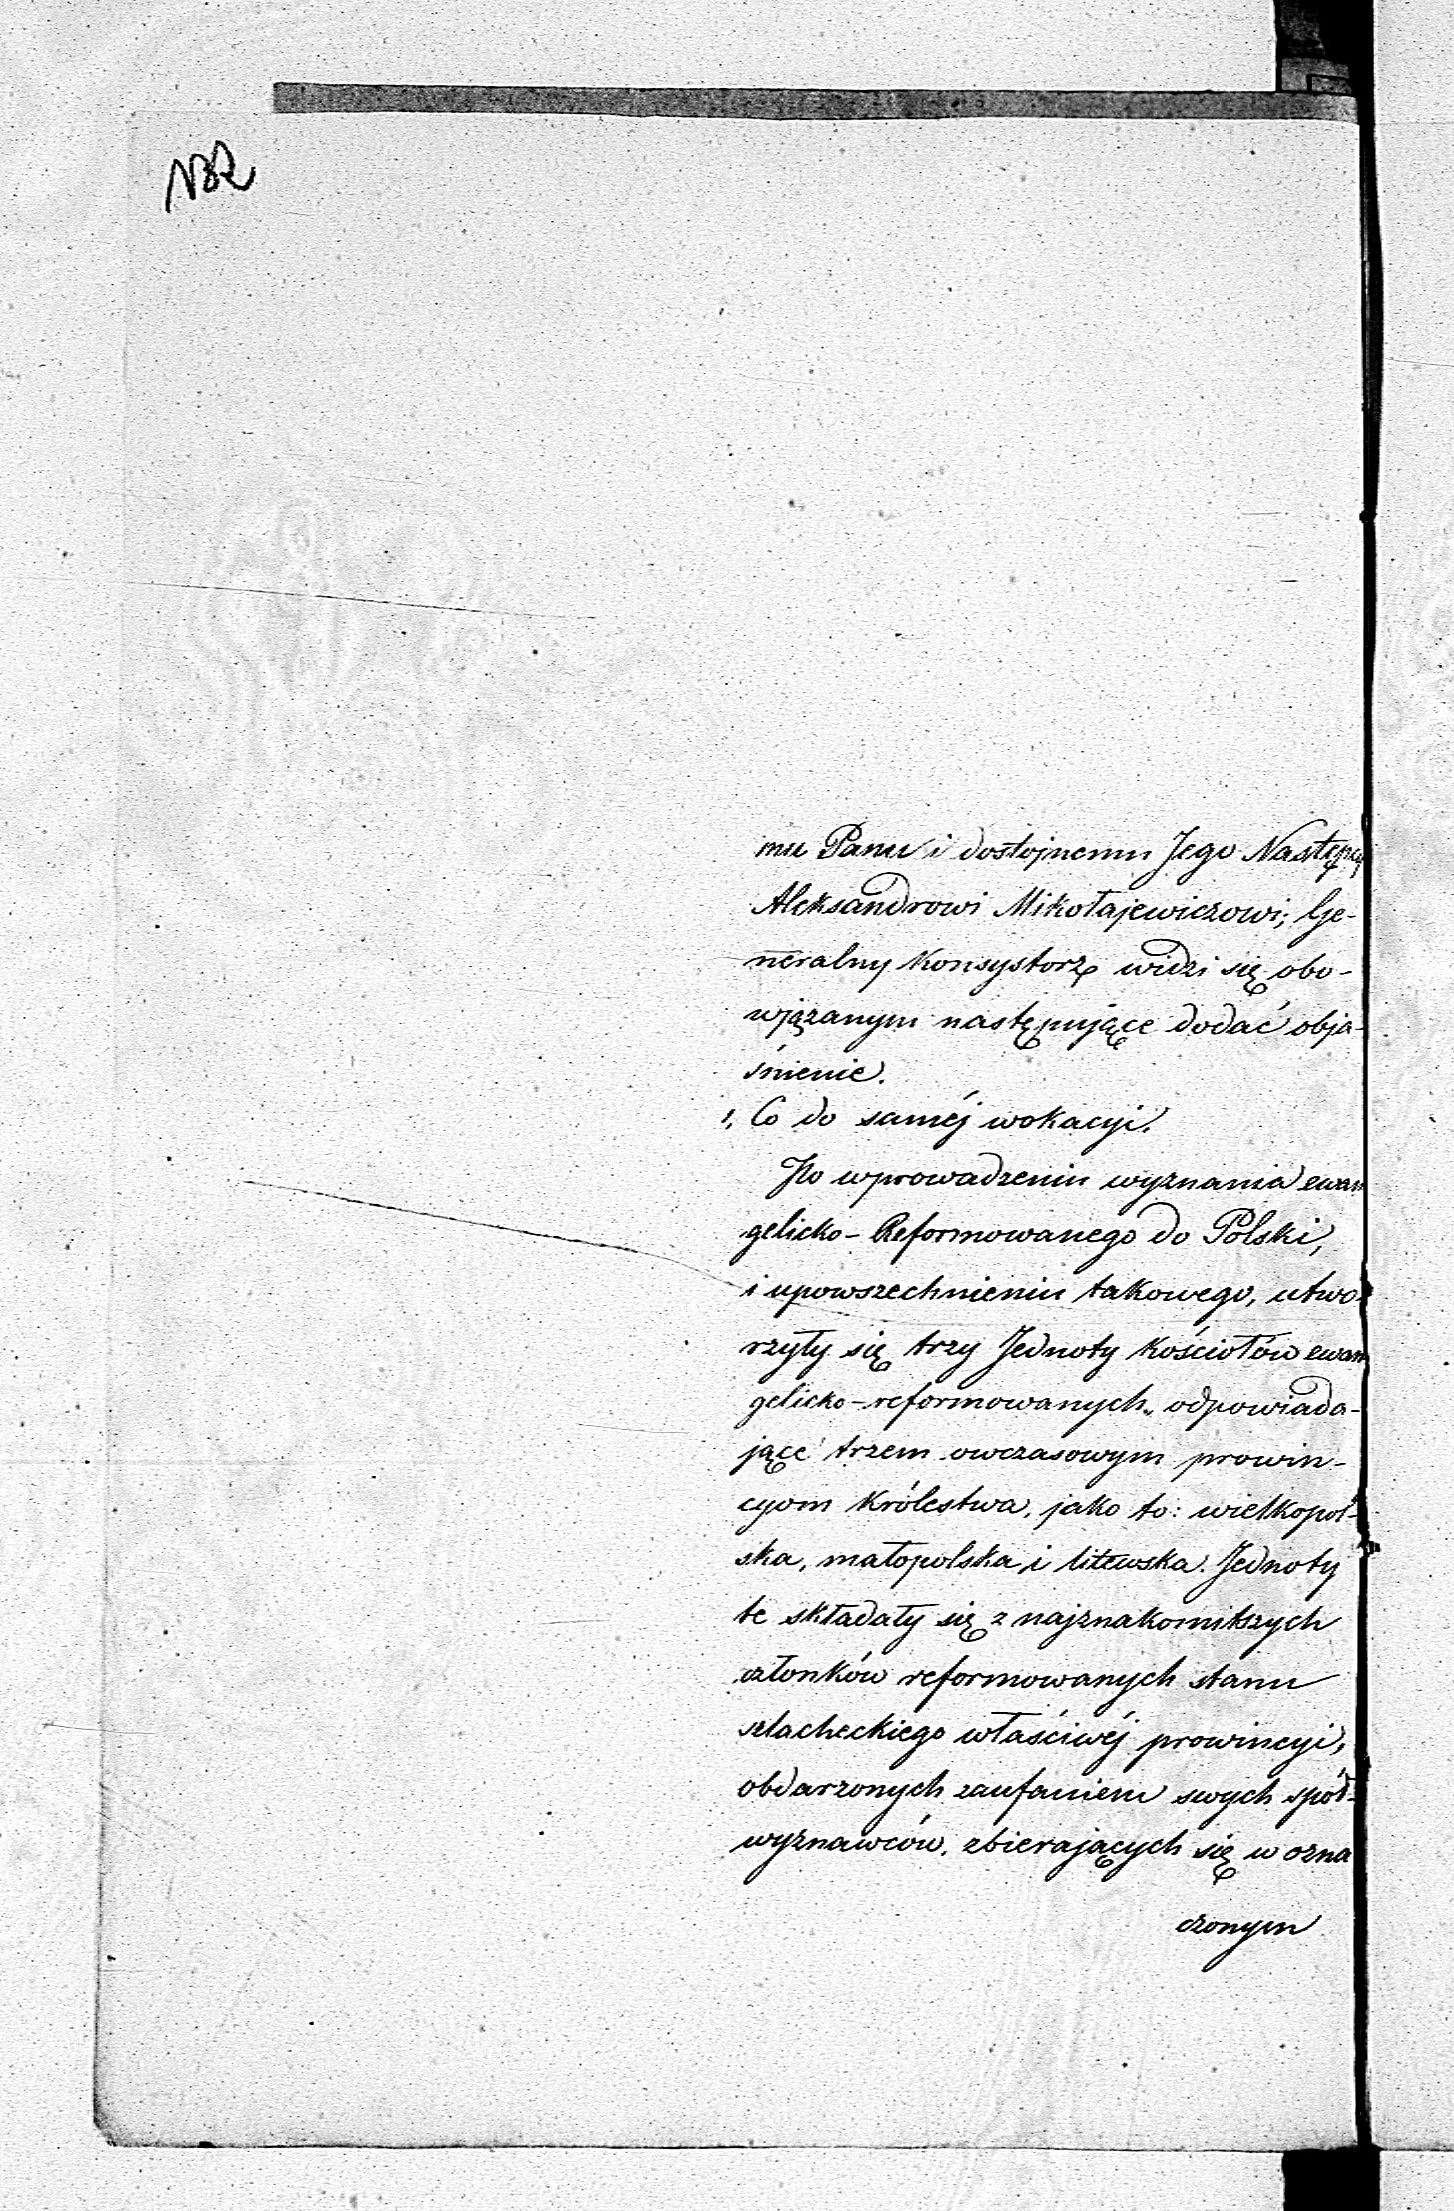 132
mu Panu i dostojnemu Jego Następcy
Aleksandrowi Mikołajewiczowi; Ge-
neralny Konsystorz widzi się obo-
wiązanym następujące dodać obja-
śnienie.
1, Co do saméj wokacyi.
Po wprowadzeniu wyznania ewan
gelicko-Reformowanego do Polski,
i upowszechnieniu takowego, utwo
rzyły się trzy Jednoty Kościołów ewan
gelicko-reformowanych, odpowiada-
jące trzem owczasowym prowin-
cyom Królestwa, jako to: wielkopol-
ska, małopolska i litewska. Jednoty
te składały się z najznakomitszych
członków reformowanych stanu
szlacheckiego właściwéj prowincyi,
obdarzonych zaufaniem swych spół-
wyznawców, zbierających się w ozna
czonym